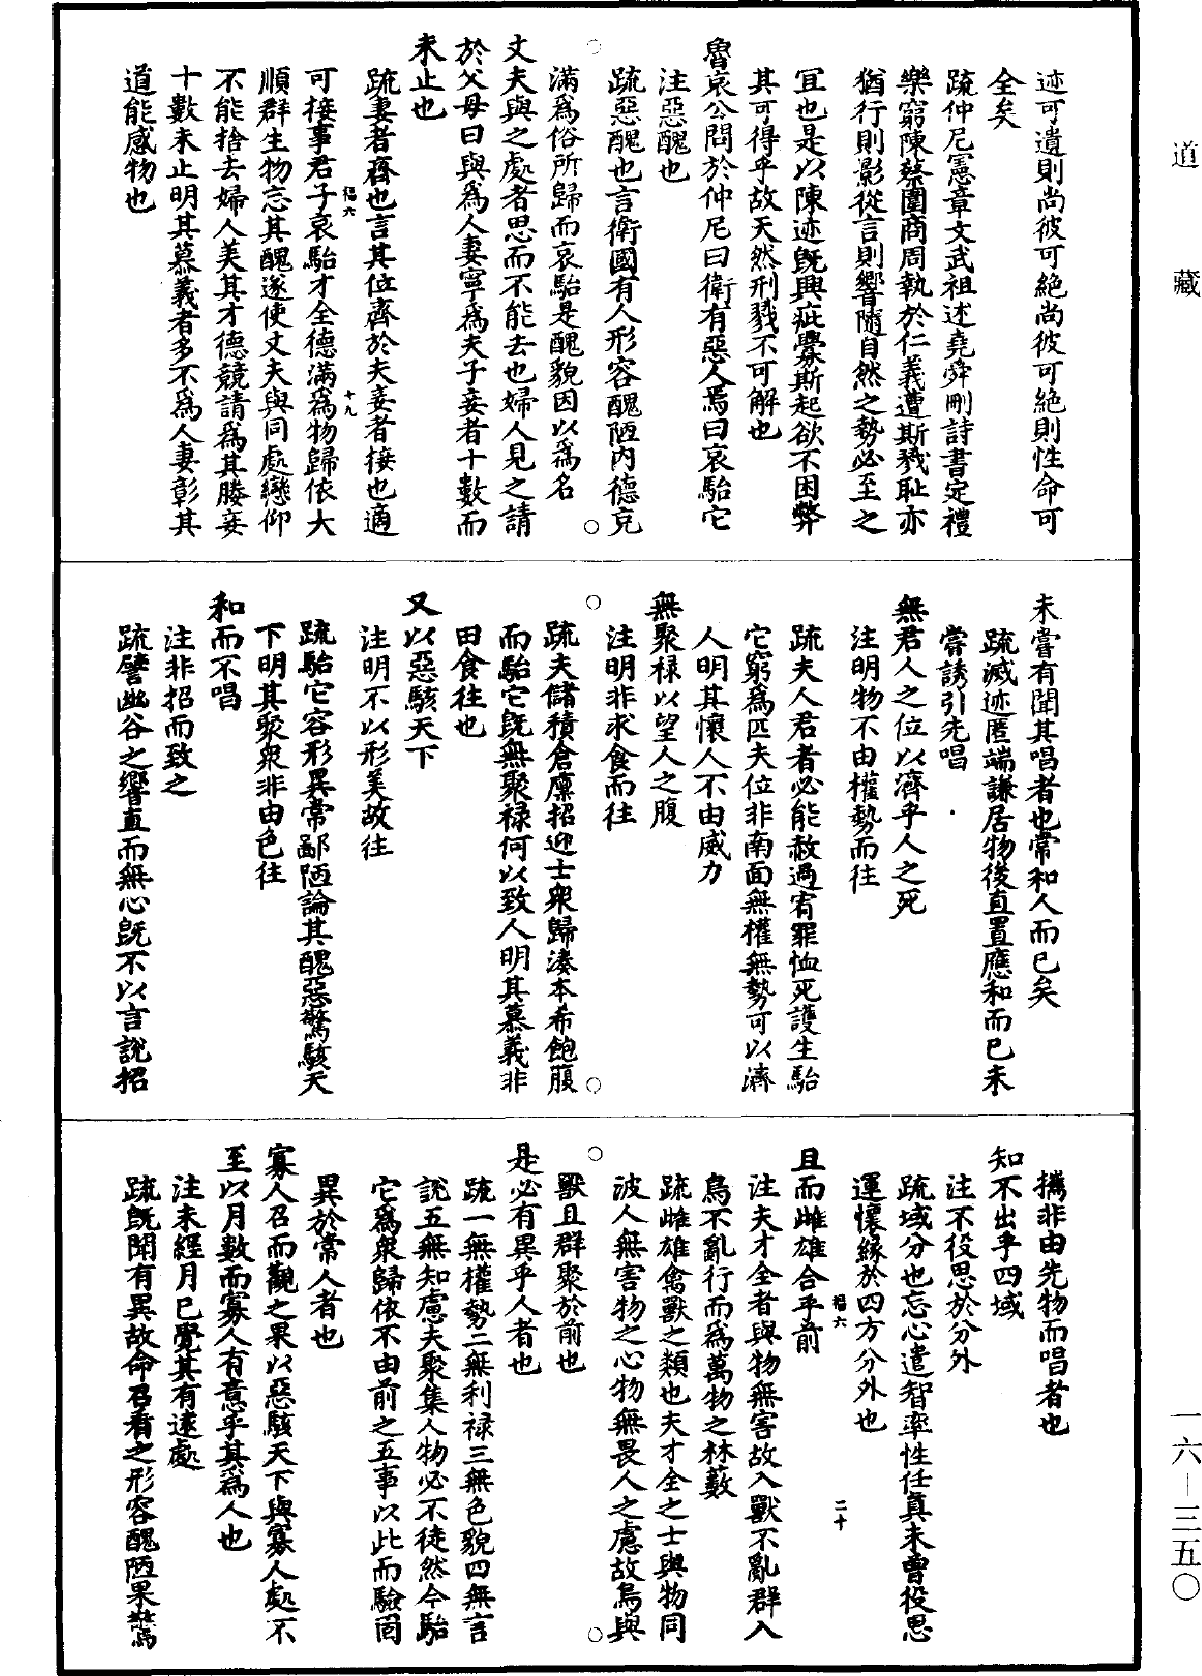 道藏
迹可遺則尚彼可絶尚彼可絶則性命可
全矣
疏仲尼憲章文武祖述堯舜刪詩書定禮
樂窮陳蔡圍商周執於仁義遭斯戮耻亦
猶行則影從言則響隨自然之勢必至之
冝也是以陳迹既興疵釁斯起欲不困弊
其可得乎故天然刑戮不可解也
魯哀公問於仲尼曰衛有惡人焉曰哀駘它
注惡醜也
疏惡醜也言衛國有人形容醜陋内德充
滿爲俗所歸而哀駘是醜貌因以爲名
丈夫與之處者思而不能去也婦人見之請
於父母曰與爲人妻寧爲夫子妾者十數而
未止也
疏妻者齊也言其位齊於夫妾者接也適
可接事君子哀駘才全德滿爲物歸依大
順群生物忘其醜遂使丈夫與同處戀仰
不能捨去婦人美其才德競請爲其媵妾
十數未止明其慕義者多不爲人妻彰其
道能感物也
福六
十九
未嘗有聞其唱者也常和人而已矣
疏滅迹匿端謙居物後直置應和而已未
嘗誘引先唱
無君人之位以濟乎人之死
注明物不由權勢而往
疏夫人君者必能赦過宥罪恤死護生駘
它窮爲匹夫位非南面無權無勢可以濟
人明其懷人不由威力
無聚禄以望人之腹
注明非求食而往
疏夫儲積倉廩招迎士衆歸湊本希飽腹
而駘它既無聚禄何以致人明其慕義非
由食往也
又以惡駭天下
注明不以形美故往
疏駘它容形異常鄙陋論其醜惡驚駭天
下明其聚衆非由色往
和而不唱
注非招而致之
疏譬幽谷之響直而無心既不以言說招
攜非由先物而唱者也
知不出乎四域
注不役思於分外
疏域分也忘心遣智率性任真未曾役思
運懷緣於四方分外也
且而雌雄合乎前
注夫才全者與物無害故入獸不亂群入
鳥不亂行而爲萬物之林藪
疏雌雄禽獸之類也夫才全之士與物同
波人無害物之心物無畏人之慮故鳥與
獸且群聚於前也
是必有異乎人者也
疏一無權勢二無利禄三無色貌四無言
說五無知慮夫聚集人物必不徒然今駘
它爲衆歸依不由前之五事以此而驗固
異於常人者也
寡人召而觀之果以惡駭天下與寡人處不
至以月數而寡人有意乎其爲人也
注未經月已覺其有遠處
疏既聞有異故命召看之形容醜陋果驚
福六
二十
一六—三五〇